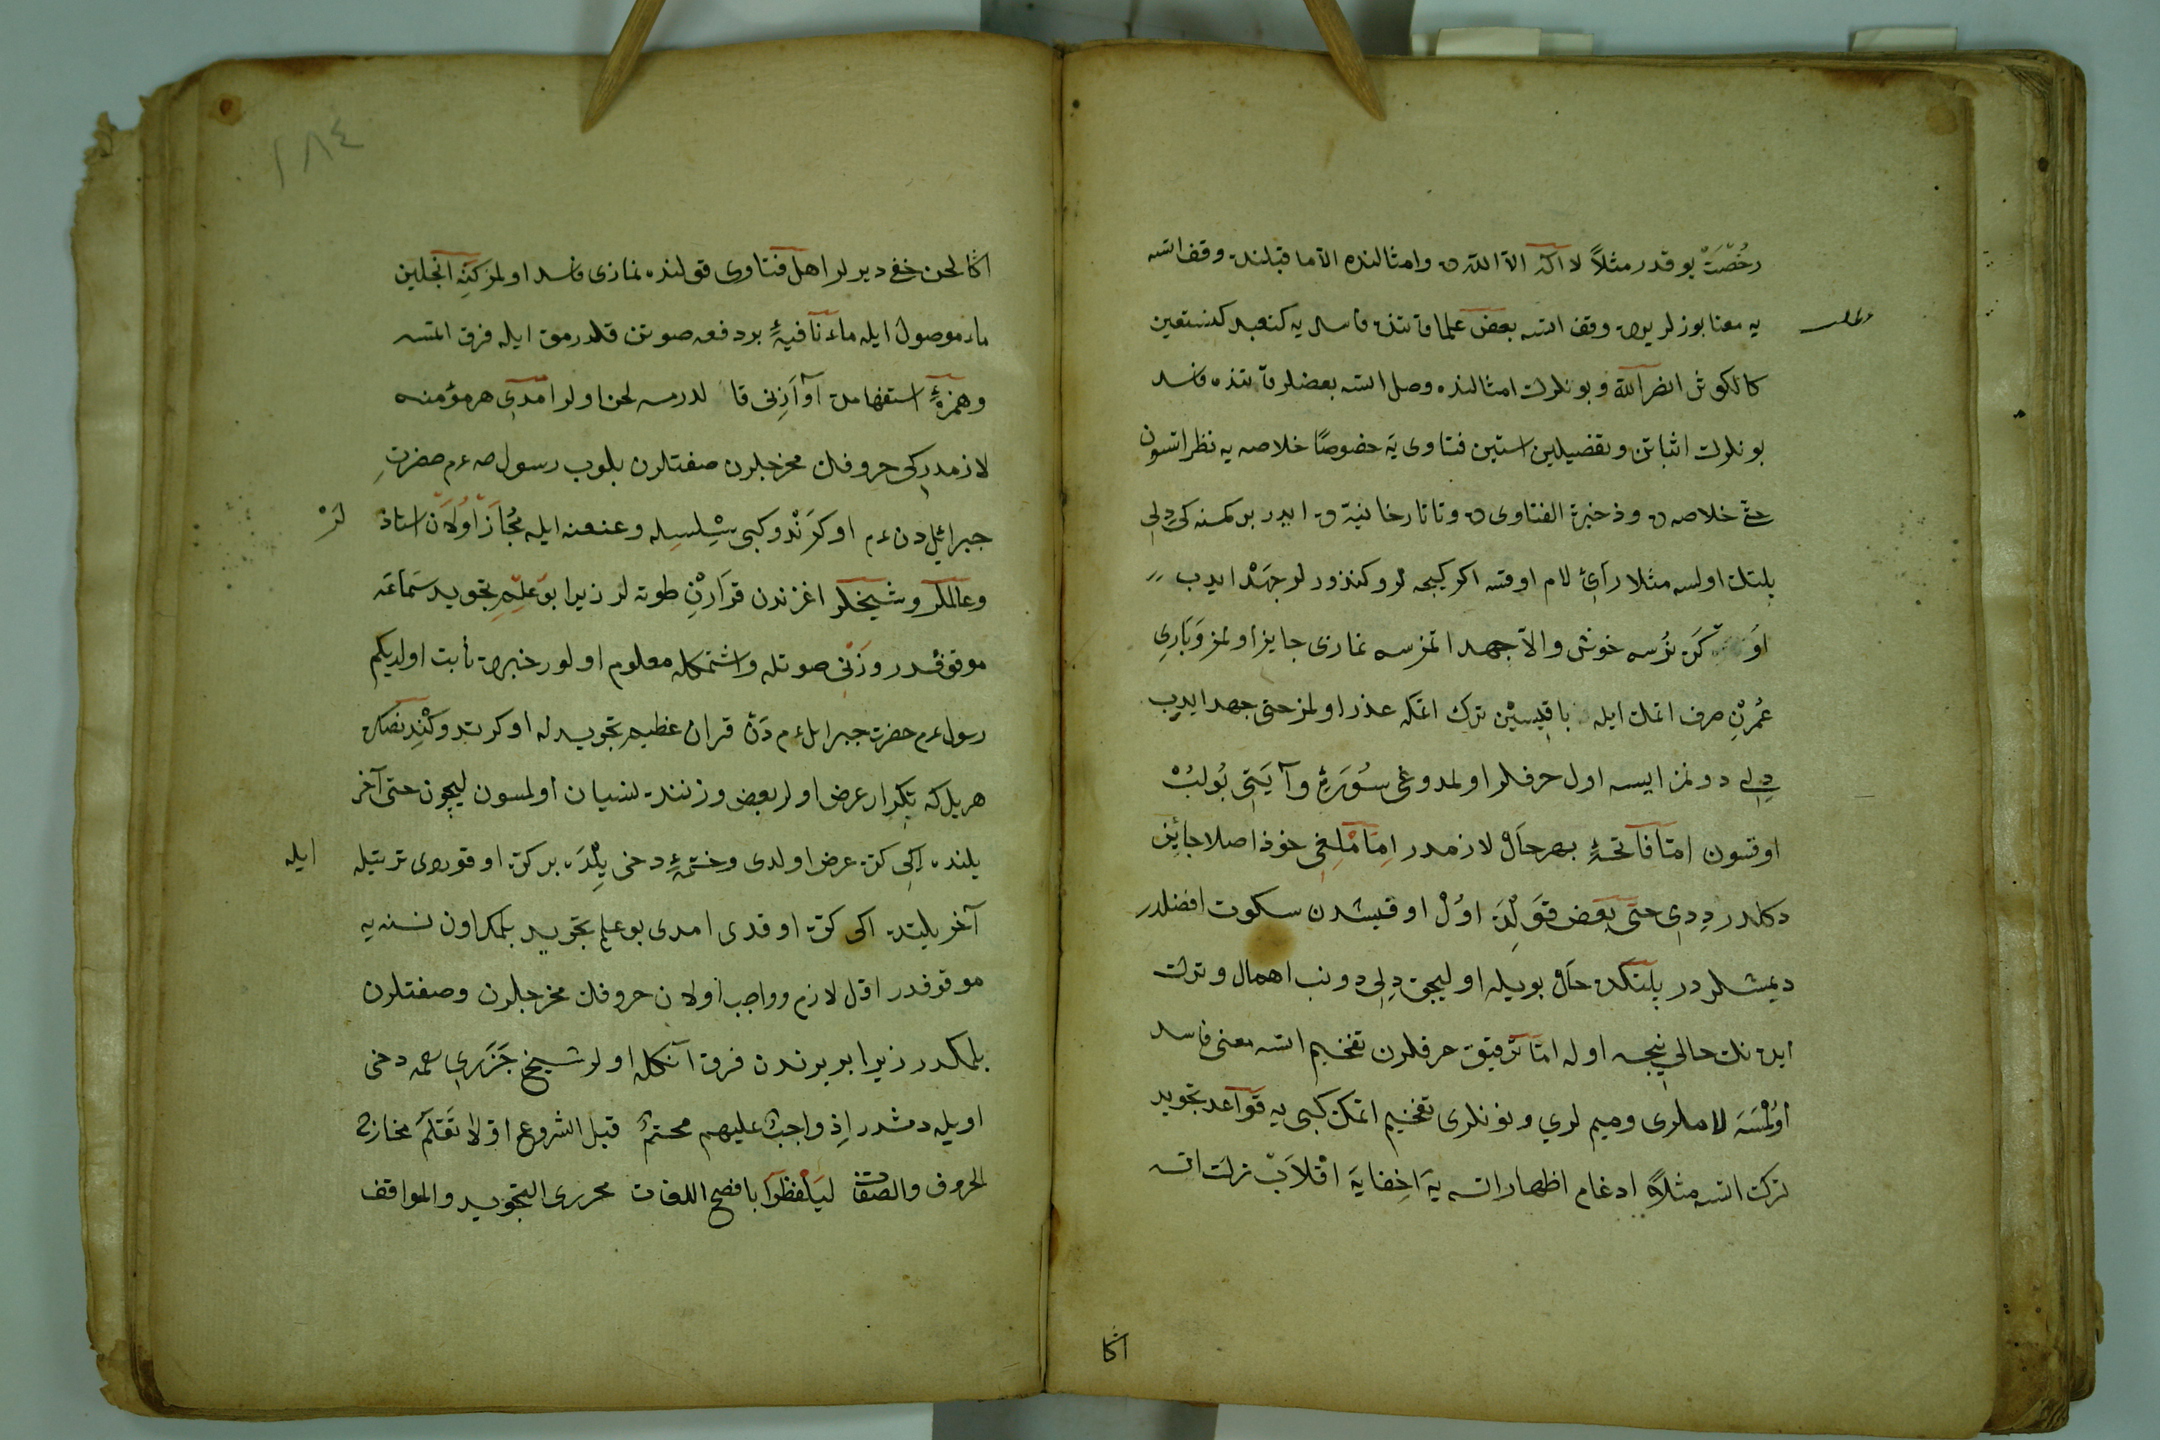 رُخْصَتْ يوقدر مثلاً لا اله الا الله ده وامثالنده الا ما قبلنده وقف اتسه
يه معنا بوزلر يرده وقف اتسه بعض علما قاتنده فاسد يه كنعبد كنستعين
كالكوثر انصر الله وبونلرك امثالنده وصل اتسه بعضلر قاتنده فاسد
بونلرك اثباتن وتفضيلين استين فتاوى يه خصوصًا خلاصه يه نظر اتسون
حتى خلاصه ده وذخيرة الفتاوى ده وتاتارخانيّه ده ايدر بر كمسنه كى دِلِى
پلتك اولسه مثلا راىِٔ لام اوقسه اكر كيجه لر وكندوزلر جَهْد ايدب
كَرنُرسه خوش والاّ جهد اتمزسه نمازى جايز اولمز وَبَارِى
عُمرْنِ صرف اتمك ايله باقِيسِيْن ترك اتمكه عذر اولمز حتى جهد ايدِيب
دِلِى دونمز ايسه اول حرفلر اولمدوغى سُورَهِٔ وآيَتِى بُولبْ
اوقسون امّا فاتحهِٔ بهرحَالْ لازمدر اِمَامْلِغِى خوذ اصلا جائِز
دكلدر دِدِى حتّى بَعض قَوَلْدَه اوُلْ اوقيشدن سكوت افضلدر
ديمشلردر پلتكده حَالْ بويله اوليجق دِلِى دونب اهمال وترك
ايده نك حالى نيجه اوله امّا ترقيق حرفلرن تفخيم اتسه معنى فاسد
اوُلْمَسَه لاملرى وميم لرى ونونلرى تفخيم اتمك كبى يه قَوَاعد تجويد
ترك اتسه مثلاً ادغام اظهار اتسه يَه اخِفايَه اقْلاَبْ ترك اتسه
اكا
اكا لحن خفى ديرلر اهل فتاوى قولنده نمازى فاسد اولمز كَنِه انجلين
ماء موصولِ ايله ماء نَافيهِٔ بر دفعه صوتن قلدرمق ايله فرق اتمسه
وهمزهِٔ استفهامده آوآذِنى قا لدرمسه لحن اولر امدِى هر مؤمنه
لازمدر كى حروفك مخرجلرن صفتلرن بلوب رسول صه عم حضرتِ
جبرائيل دن عم اوكرَنْدوكى سِلسِله وعنعنه ايله مُجَازْ اوُلاَنْ استاذ
لَرْ
وعالملر وشيخلر اغزندن قرَارْنِ طوته لر زيرا بو علِمِ تجويد سَمَاعَه
موقوفدر وزَنِى صوتله واشتمكله معلوم اولور خبرده ثابت اولديكم
رسول عم حضرت جبرائل عم دَن قران عظيم تجويدله اوكرندوكنْدِنصكره
هر يل كه تِكْرار عرض اولر بعض وزننده نسيان اولمسون ليچون حتى آخر
يلنده اكِى كره عرض اولدى وختمهِٔ دخى يِلْدَه بر كره اوقوردى ترتيله
ايله
آخر يلنده اكى كره اوقدى امدى بو علم تجويد بلمك اون نسنه يه
موقوفدر اوّل لازم وواجب اولان حروفك مخرجلرن وصفتلرن
بلمكدر زيرا بر برندن فرق آنكله اولر شيخ جَزَرِى رحمه دخى
اويله دمشدر اِذ واجبٌ عليهم محتمٌ قبل الشروع اوّلا تَعَلم مخارج
الحروف والصفات ليَلْفظوا بافصح اللغات محررى التجويد والمواقف